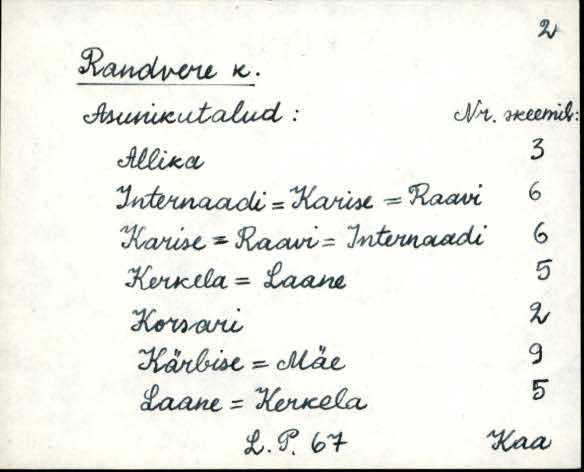 2
Randvere k.
Asunikutalud: Nr. skeemil:
Allika 3
Internaadi = Karise = Raavi 6
Karise = Raavi = Internaadi 6
Kerkela = Laane 5
Korsari 2
Kärbise = Mäe 9
Laane = Kerkela 5
L. P. 67 Kaa